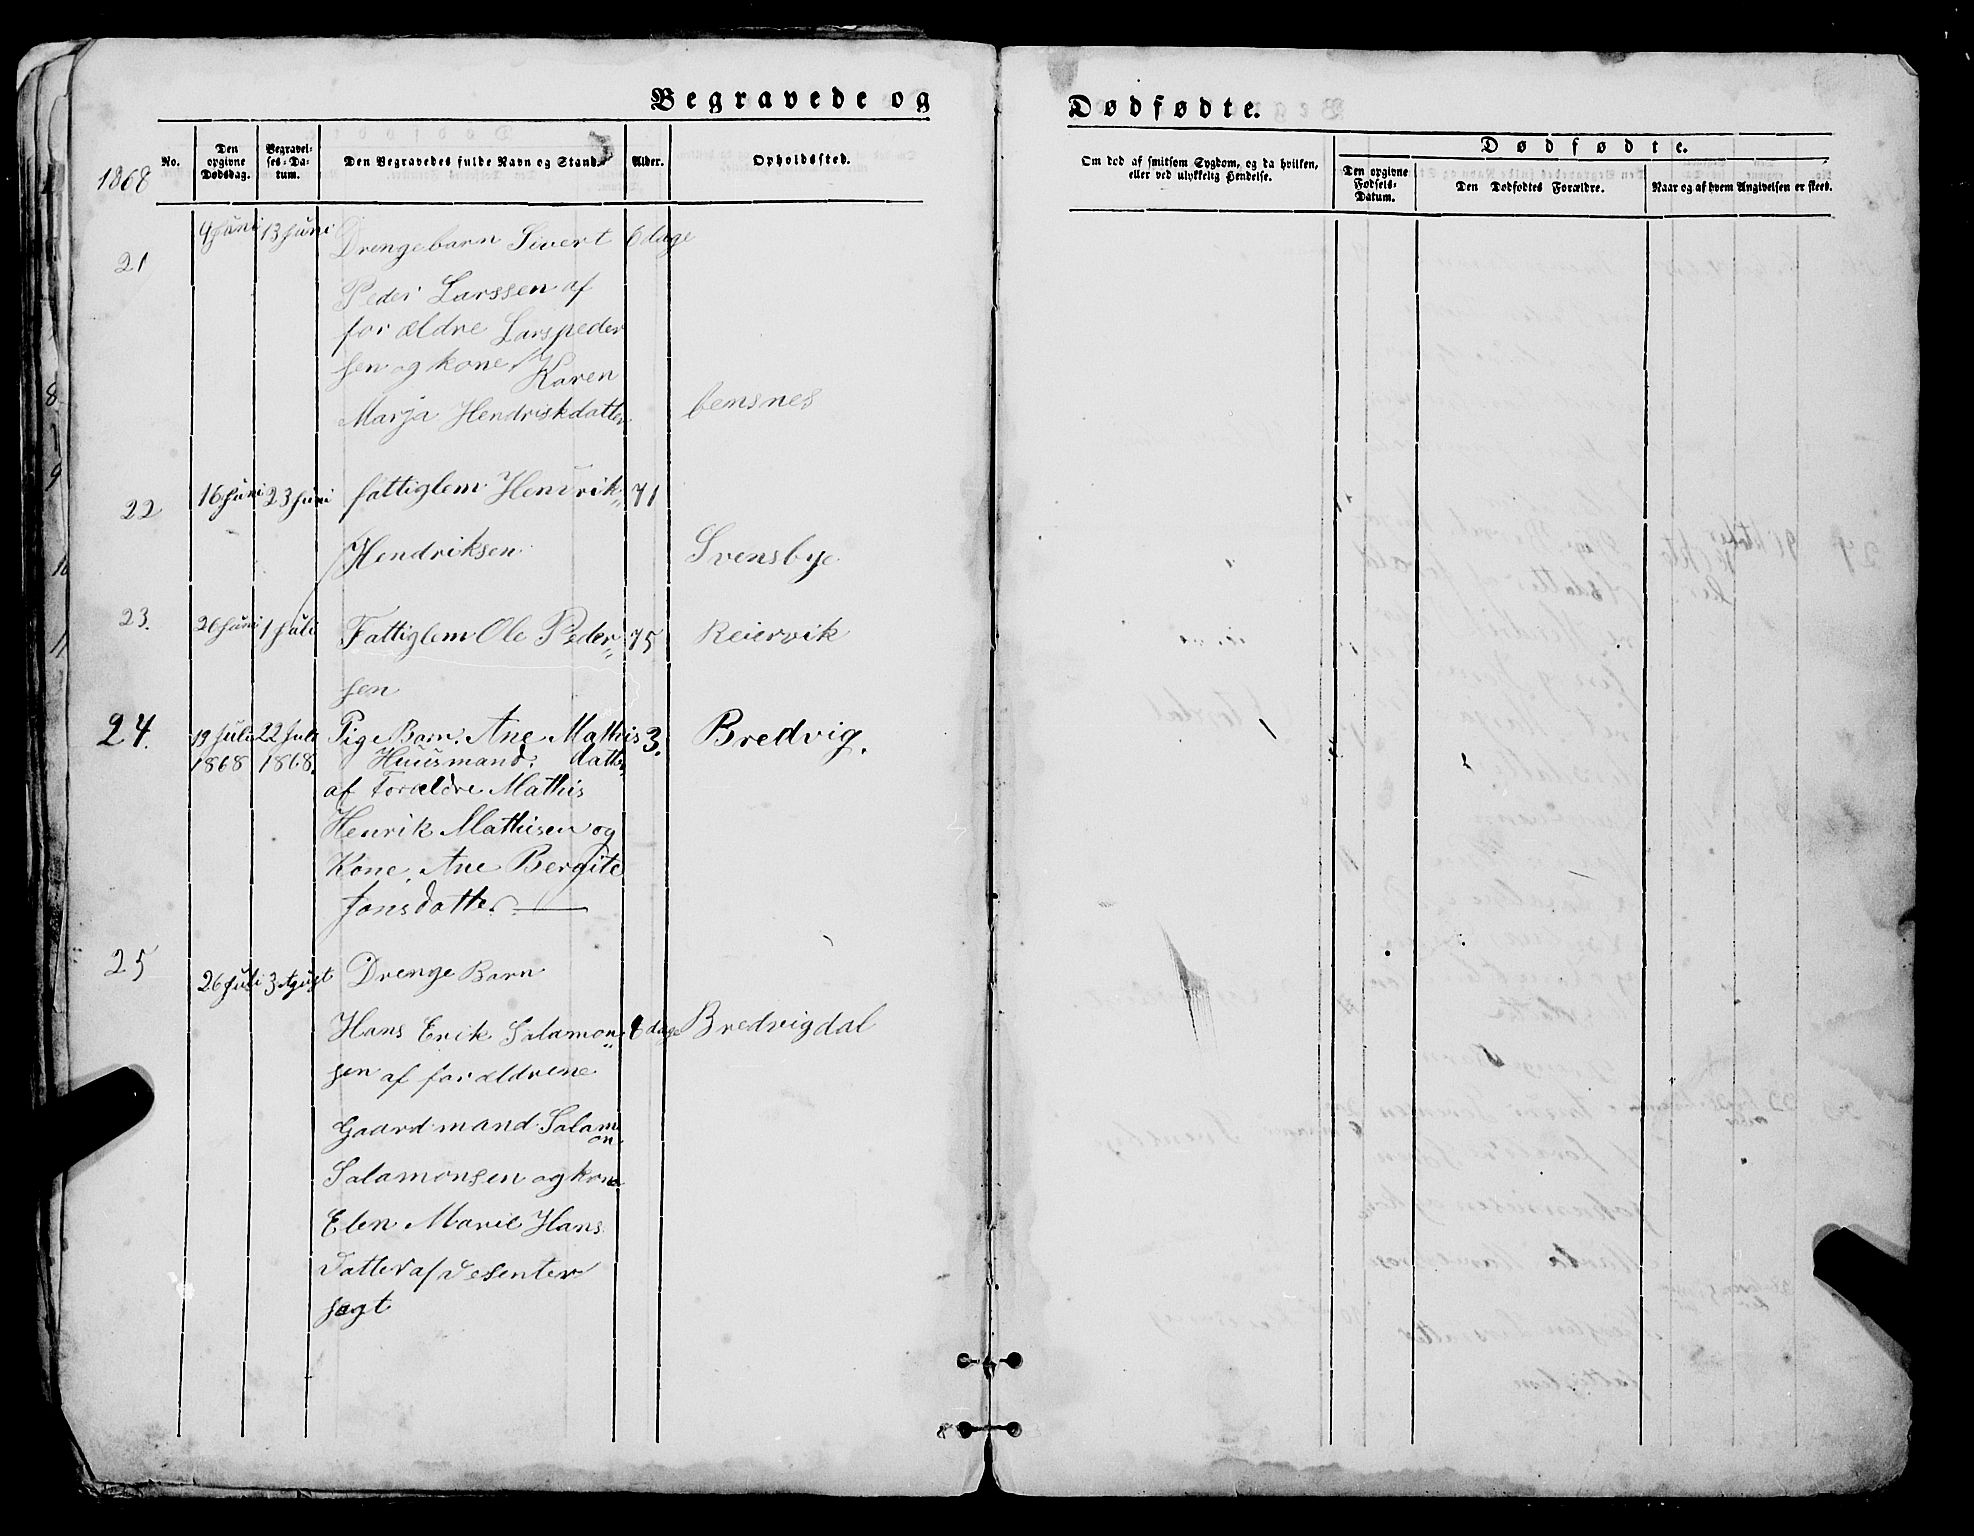 Begravede og
Dødfødte.
1868
No.
Den opgivne Dødsdag.
Begravelses-Datum.
Den Begravedes fulde Navn og Stand.
Alder.
Opholdssted.
Om død af smitsom Sygdom, og da hvilken, eller ved ulykkelig Hendelse.
Dødfødte.
Den opgivne Fødsels-Datum.
Den Dødfødtes Forældre.
Naar og af hvem Angivelsen er skeet.
21
9 Juni 13 Juni Drengebarn Sivert 6 dage
Peder Larssen af
forældre Lars peder
sen og kone Karen
Marja Hendrikdatter. bensnes
22 16 Juni 23 Juni fattiglem Henrik 71
Hendriksen Svensbye
23. 26 Juni 1 Juli Fattiglem Ole Peder 75 Reiervik
sen
24. 19 Juli 22 Juli Pig Barn. Ane Mathis 3. Bredvig.
1868 1868. Huusmand. datter
af Forældre Mathis
Henrik Mathisen og
Kone. Ane Bergite
Jonsdatter.
25
26 Juli 3 Agust Drenge Barn
Hans Erik Salamon 8 dage Bredvigdal
sen af forældrene
Gaardmand Salam
on
Salamonsen og kone
Elen Marie Hans
datter af desenter
sagt